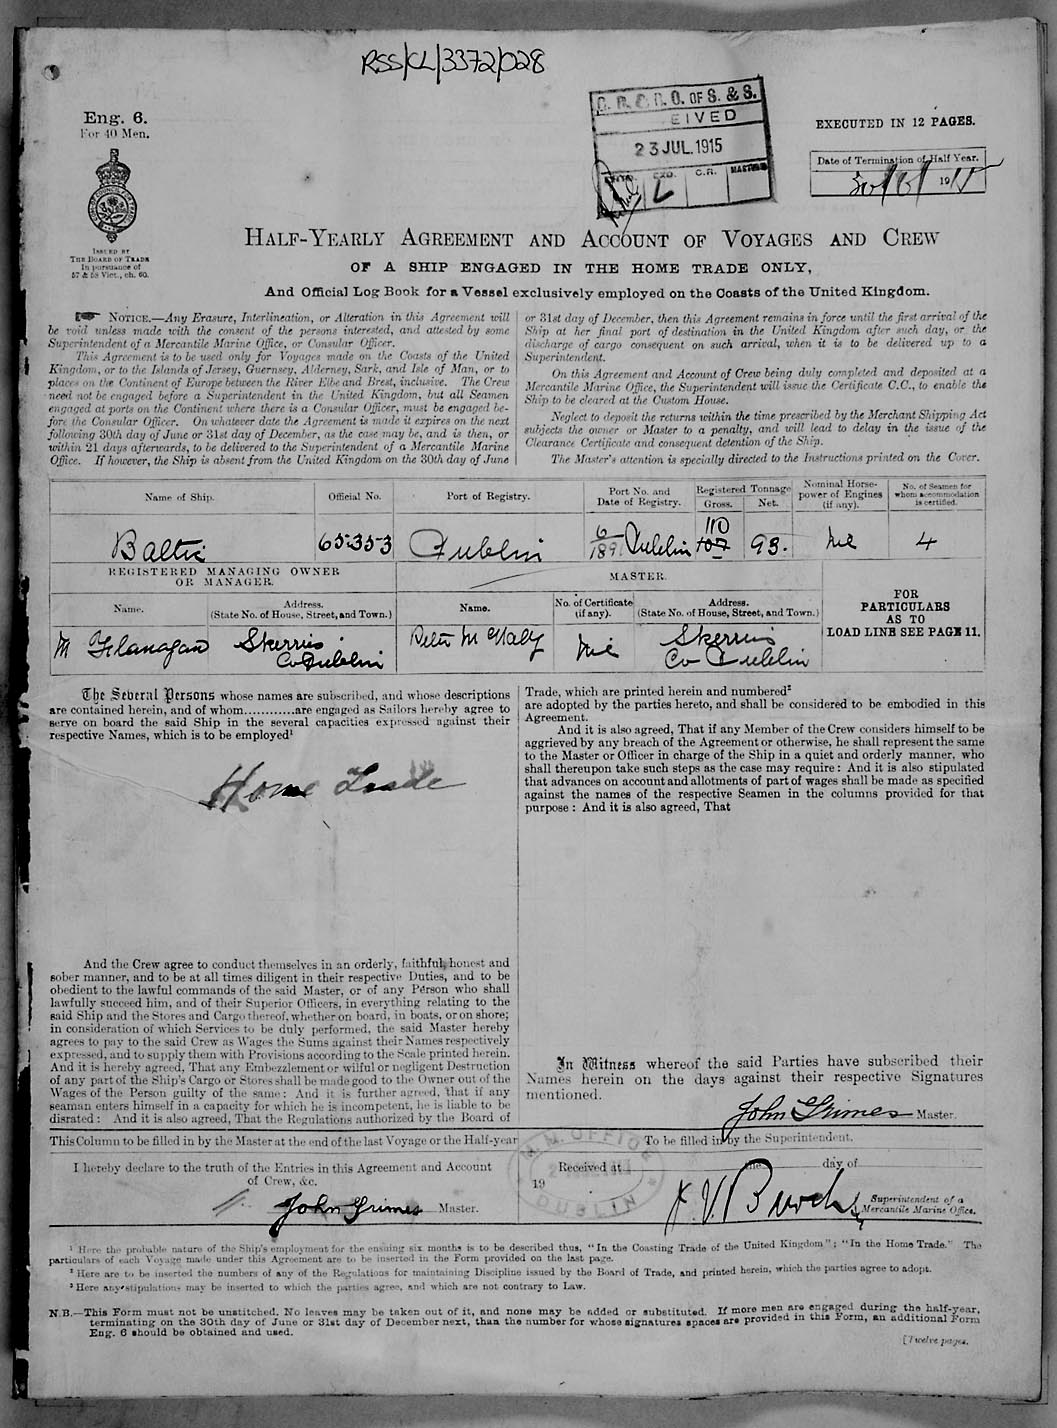 RSS/CL/3372/028
Eng. 6.
For 40 Men.
ISSUED BY
THE BOARD OF TRADE
In pursuance of
57 & 58 Vict., ch. 60.
O. OF S. & S.
EIVED
23 JUL. 1915
C.R.
EXECUTED IN 12 PAGES.
Date of Termination of Half Year.
30/6/1915
HALF-YEARLY AGREEMENT AND ACCOUNT OF VOYAGES AND CREW
OF A SHIP ENGAGED IN THE HOME TRADE ONLY,
And Official Log Book for a Vessel exclusively employed on the Coasts of the United Kingdom.
NOTICE.—Any Erasure, Interlineation, or Alteration in this Agreement will
be void unless made with the consent of the persons interested, and attested by some
Superintendent of a Mercantile Marine Office, or Consular Officer.
This Agreement is to be used only for Voyages made on the Coasts of the United
Kingdom, or to the Islands of Jersey, Guernsey, Alderney, Sark, and Isle of Man, or to
places on the Continent of Europe between the River Elbe and Brest, inclusive. The Crew
need not be engaged before a Superintendent in the United Kingdom, but all Seamen
engaged at ports on the Continent where there is a Consular Officer, must be engaged be-
fore the Consular Officer. On whatever date the Agreement is made it expires on the next
following 30th day of June or 31st day of December, as the case may be, and is then, or
within 21 days afterwards, to be delivered to the Superintendent of a Mercantile Marine
Office. If however, the Ship is absent from the United Kingdom on the 30th day of June
or 31st day of December, then this Agreement remains in force until the first arrival of the
Ship at her final port of destination in the United Kingdom after such day, or the
discharge of cargo consequent on such arrival, when it is to be delivered up to a
Superintendent.
On this Agreement and Account of Crew being duly completed and deposited at a
Mercantile Marine Office, the Superintendent will issue the Certificate C.C., to enable the
Ship to be cleared at the Custom House.
Neglect to deposit the returns within the time prescribed by the Merchant Shipping Act
subjects the owner or Master to a penalty, and will lead to delay in the issue of the
Clearance Certificate and consequent detention of the Ship.
The Master's attention is specially directed to the Instructions printed on the Cover.
Name of Ship.
Official No.
Port of Registry.
Port No. and
Date of Registry.
Registered Tonnage
Gross.
Net.
Nominal Horse-
power of Engines
(if any).
No. of Seamen for
whom accommodation
is certified.
Baltic
65353
Dublin
6/189 Dublin
110
107
93.
Nil
4
REGISTERED MANAGING OWNER
OR MANAGER.
MASTER.
FOR
PARTICULARS
AS TO
LOAD LINE SEE PAGE 11.
Name.
Address.
(State No. of House, Street, and Town.)
Name.
No. of Certificate
(if any).
Address.
(State No. of House, Street, and Town.)
M Flanagan
Skerries
Co Dublin
Peter McNally
Nil
Skerries
Co Dublin
The Several Persons whose names are subscribed, and whose descriptions
are contained herein, and of whom............are engaged as Sailors hereby agree to
serve on board the said Ship in the several capacities expressed against their
respective Names, which is to be employed¹
Home Trade
And the Crew agree to conduct themselves in an orderly, faithful, honest and
sober manner, and to be at all times diligent in their respective Duties, and to be
obedient to the lawful commands of the said Master, or of any Person who shall
lawfully succeed him, and of their Superior Officers, in everything relating to the
said Ship and the Stores and Cargo thereof, whether on board, in boats, or on shore;
in consideration of which Services to be duly performed, the said Master hereby
agrees to pay to the said Crew as Wages the Sums against their Names respectively
expressed, and to supply them with Provisions according to the Scale printed herein.
And it is hereby agreed, That any Embezzlement or wilful or negligent Destruction
of any part of the Ship's Cargo or Stores shall be made good to the Owner out of the
Wages of the Person guilty of the same: And it is further agreed, that if any
seaman enters himself in a capacity for which he is incompetent, he is liable to be
disrated: And it is also agreed, That the Regulations authorized by the Board of
Trade, which are printed herein and numbered²
are adopted by the parties hereto, and shall be considered to be embodied in this
Agreement.
And it is also agreed, That if any Member of the Crew considers himself to be
aggrieved by any breach of the Agreement or otherwise, he shall represent the same
to the Master or Officer in charge of the Ship in a quiet and orderly manner, who
shall thereupon take such steps as the case may require: And it is also stipulated
that advances on account and allotments of part of wages shall be made as specified
against the names of the respective Seamen in the columns provided for that
purpose: And it is also agreed, That
In Witness whereof the said Parties have subscribed their
Names herein on the days against their respective Signatures
mentioned.
John Grimes Master.
This Column to be filled in by the Master at the end of the last Voyage or the Half-year
To be filled in by the Superintendent.
I hereby declare to the truth of the Entries in this Agreement and Account
of Crew, &c.
John Grimes Master.
Received at the day of
19
M. M. OFFICE
DUBLIN
Superintendent of a
Mercantile Marine Office.
¹ Here the probable nature of the Ship's employment for the ensuing six months is to be described thus, "In the Coasting Trade of the United Kingdom"; "In the Home Trade." The
particulars of each Voyage made under this Agreement are to be inserted in the Form provided on the last page.
² Here are to be inserted the numbers of any of the Regulations for maintaining Discipline issued by the Board of Trade, and printed herein, which the parties agree to adopt.
³ Here any stipulations may be inserted to which the parties agree, and which are not contrary to Law.
N.B.—This Form must not be unstitched. No leaves may be taken out of it, and none may be added or substituted. If more men are engaged during the half-year,
terminating on the 30th day of June or 31st day of December next, than the number for whose signatures spaces are provided in this Form, an additional Form
Eng. 6 should be obtained and used.
[Twelve pages.